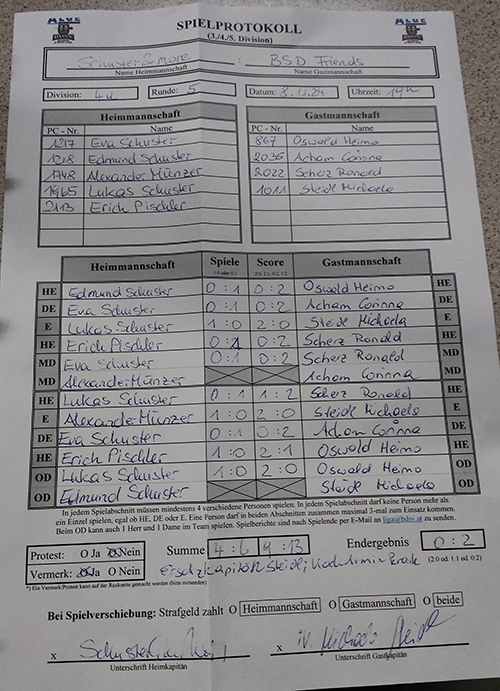 SPIELPROTOKOLL
(3./4./5. Division)
Schuster & more : BSD Friends
Name Heimmannschaft Name Gastmannschaft
Division: 4a Runde: 5 Datum: 8.11.24 Uhrzeit: 19h
Heimmannschaft Gastmannschaft
PC - Nr. Name PC - Nr. Name
1217 Eva Schuster 867 Oswald Heimo
1218 Edmund Schuster 2036 Acham Corinna
1748 Alexander Münzer 2022 Scherz Ronald
1965 Lukas Schuster 1011 Steidl Michaela
2113 Erich Pischler
Heimmannschaft Spiele Score Gastmannschaft
1:0 oder 0:1 2:0, 2:1, 0:2, 1:2
HE Edmund Schuster 0:1 0:2 Oswald Heimo HE
DE Eva Schuster 0:1 0:2 Acham Corinna DE
E Lukas Schuster 1:0 2:0 Steidl Michaela E
HE Erich Pischler 0:1 0:2 Scherz Ronald HE
MD Eva Schuster 0:1 0:2 Scherz Ronald MD
MD Alexander Münzer Acham Corinna MD
HE Lukas Schuster 0:1 1:2 Scherz Ronald HE
E Alexander Münzer 1:0 2:0 Steidl Michaela E
DE Eva Schuster 0:1 0:2 Acham Corinna DE
HE Erich Pischler 1:0 2:1 Oswald Heimo HE
OD Lukas Schuster 1:0 2:0 Oswald Heimo OD
OD Edmund Schuster Steidl Michaela OD
In jedem Spielabschnitt müssen mindestens 4 verschiedene Personen spielen. In jedem Spielabschnitt darf keine Person mehr als
ein Einzel spielen, egal ob HE, DE oder E. Eine Person darf in beiden Abschnitten zusammen maximal 3-mal zum Einsatz kommen.
Beim OD kann auch 1 Herr und 1 Dame im Team spielen. Spielberichte sind nach Spielende per E-Mail an liga@bdsv.at zu senden.
Protest: O Ja O Nein Summe 4:6 9:13 Endergebnis 0:2
Vermerk: O Ja O Nein Ersatzkapitän Steidl (2:0 od. 1:1 od. 0:2)
*) Ein Vermerk/Protest kann auf der Rückseite gemacht werden (bitte mitsenden)
Bei Spielverschiebung: Strafgeld zahlt O Heimmannschaft O Gastmannschaft O beide
x x
Unterschrift Heimkapitän Unterschrift Gastkapitän